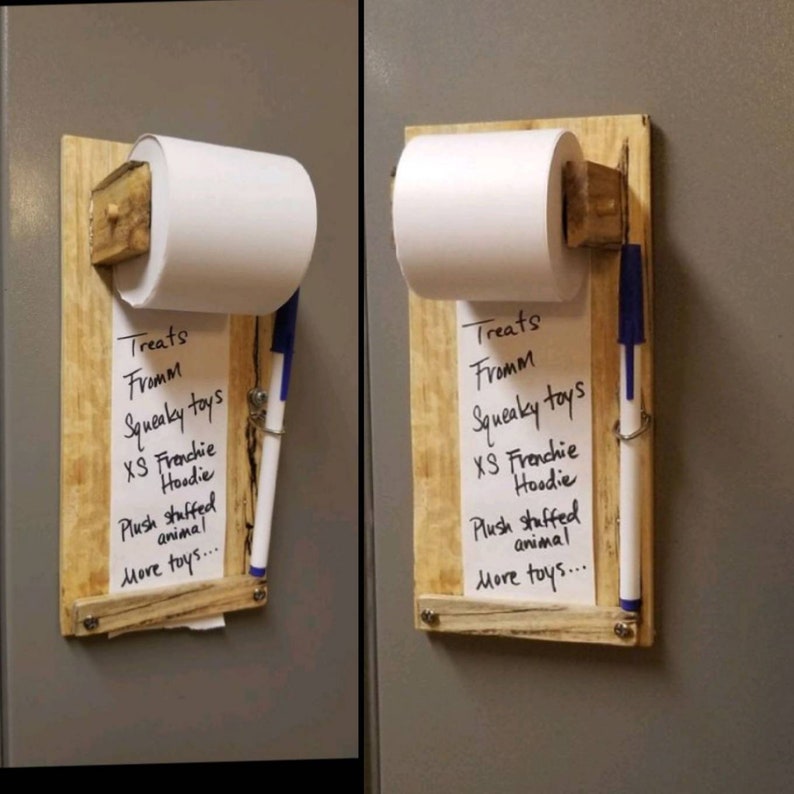 Treats
Fromm
Squeaky toys
XS Frenchie
Hoodie
Plush stuffed
animal
More toys...
Treats
Fromm
Squeaky toys
XS Frenchie
Hoodie
Plush stuffed
animal
More toys...